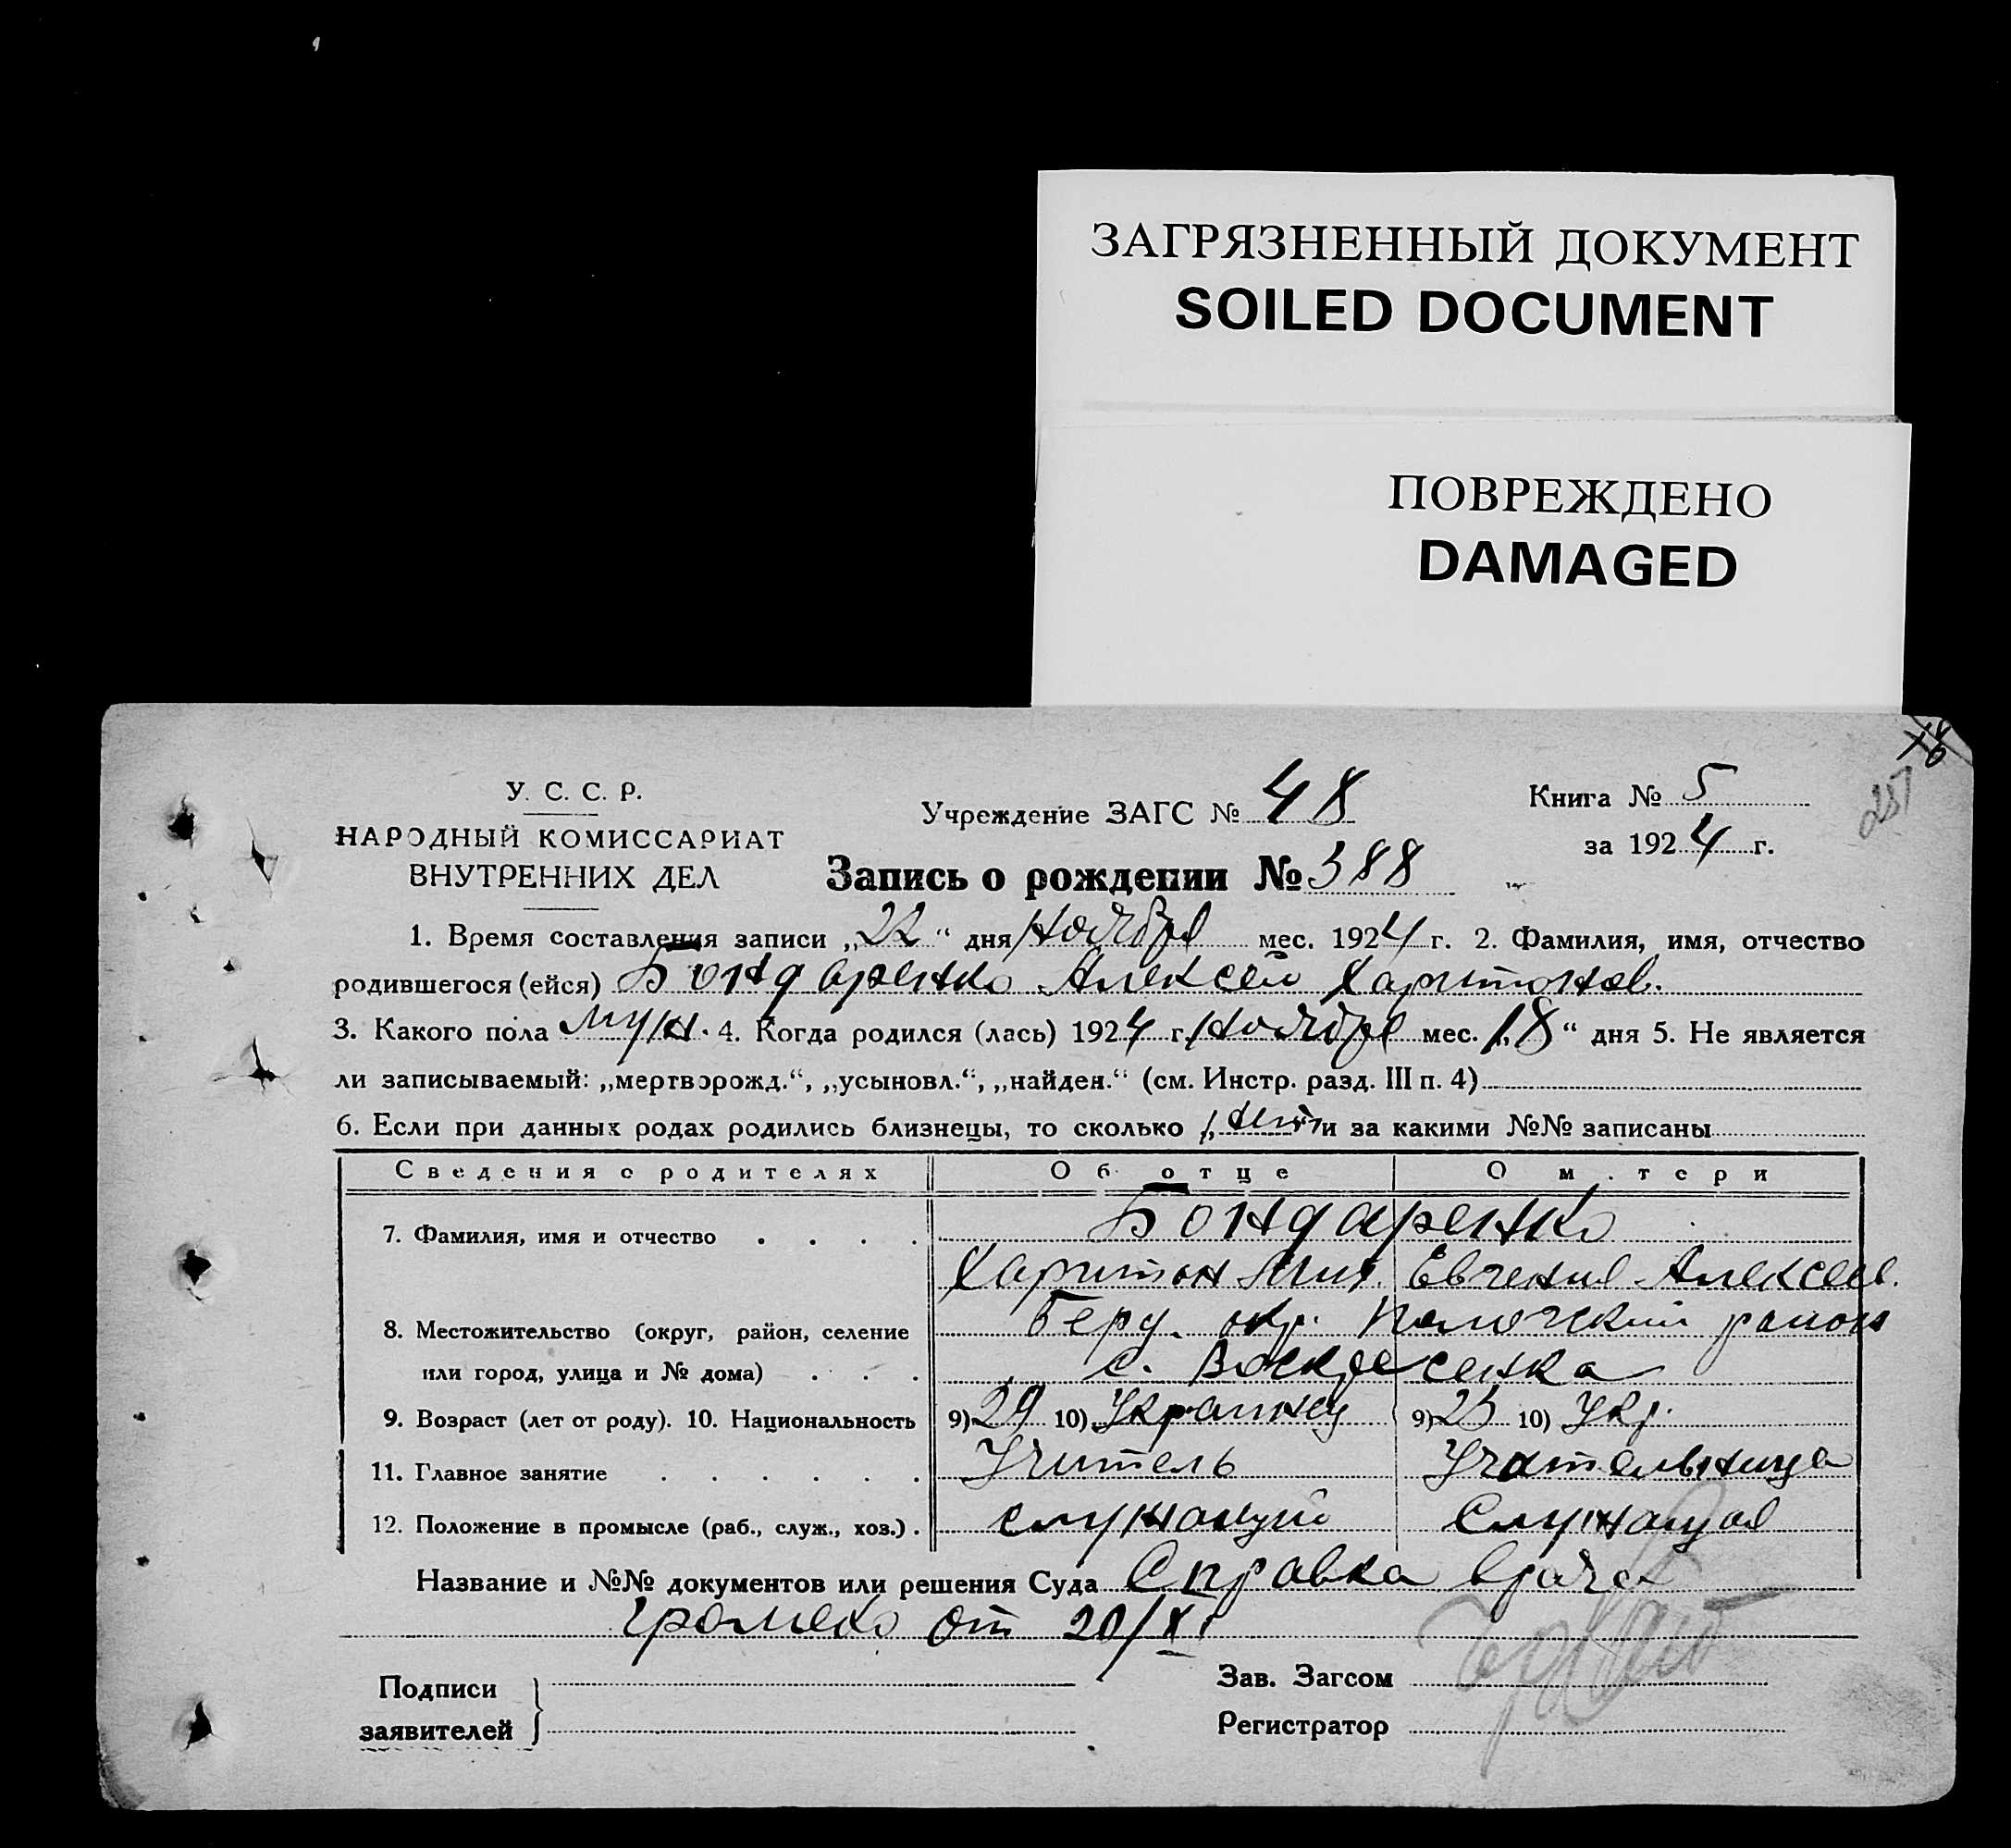 ЗАГРЯЗНЕННЫЙ ДОКУМЕНТ
SOILED DOCUMENT
ПОВРЕЖДЕНО
DAMAGED
У. С. С. Р.
НАРОДНЫЙ КОМИССАРИАТ
ВНУТРЕННИХ ДЕЛ
Учреждение ЗАГС № 48
Книга № 5
за 1924 г.
287
Запись о рождении № 388
1. Время составления записи „22“ дня Ноября мес. 1924 г. 2. Фамилия, имя, отчество
родившегося (ейся) Бондаренко Алексей Харитонов.
3. Какого пола муж. 4. Когда родился (лась) 1924 г. Ноября мес. „18“ дня 5. Не является
ли записываемый: „мертворожд.“, „усыновл.“, „найден.“ (см. Инстр. разд. III п. 4)
6. Если при данных родах родились близнецы, то сколько и за какими №№ записаны
Сведения о родителях Об отце О м.тери
7. Фамилия, имя и отчество . . . . Бондаренко
Харитон Мих. Евгения Алексеев.
8. Местожительство (округ, район, селение Берд. окр. район
или город, улица и № дома) . . . с. Воскресенка
9. Возраст (лет от роду). 10. Национальность 9) 29 10) Украинец 9) 25 10) Укр.
11. Главное занятие . . . . . . Учитель Учительница
12. Положение в промысле (раб., служ., хоз.) . служащий Служащая
Название и №№ документов или решения Суда Справка врача
Громеко от 20/XI
Подписи
заявителей
Зав. Загсом
Регистратор